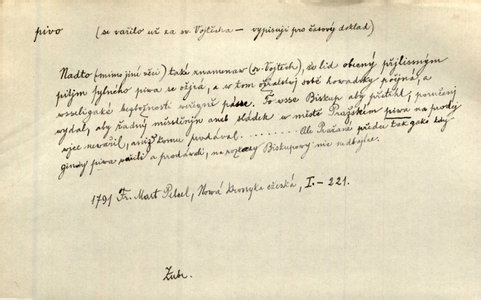 pivo (se vařilo už za sv. Vojtěcha — vypisuji pro časový doklad)
Nadto (mimo jiné věci) také znamenav (sv. Vojtěch), že lid obecný přjlissným
pitjm sylného piwa se ožjrá, a w tom ožralstwj sobě howadsky počjná, a
wsseligaké bezbožnosti
wydal, aby žádný měsstěnjn aneb sládek w městě Pražském piwa na prodej
wjce newařil, aniž komu prodáwal. ........ Ale Pražané předce tak gako kdy
gindy piwa wařili a prodáwali, na rozkazy Biskupowy nic nedbagjce.
1791 Fr. Mart Pelcel, Nová kronyka česká, I. – 221.
Zubr.